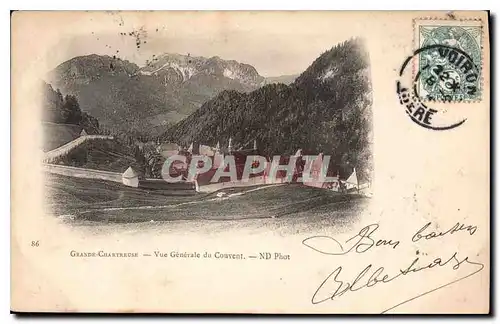 VOIRON
ISÈRE
CAPHIL
86
GRANDE-CHARTREUSE — Vue Générale du Couvent. — ND Phot
Bons baisers